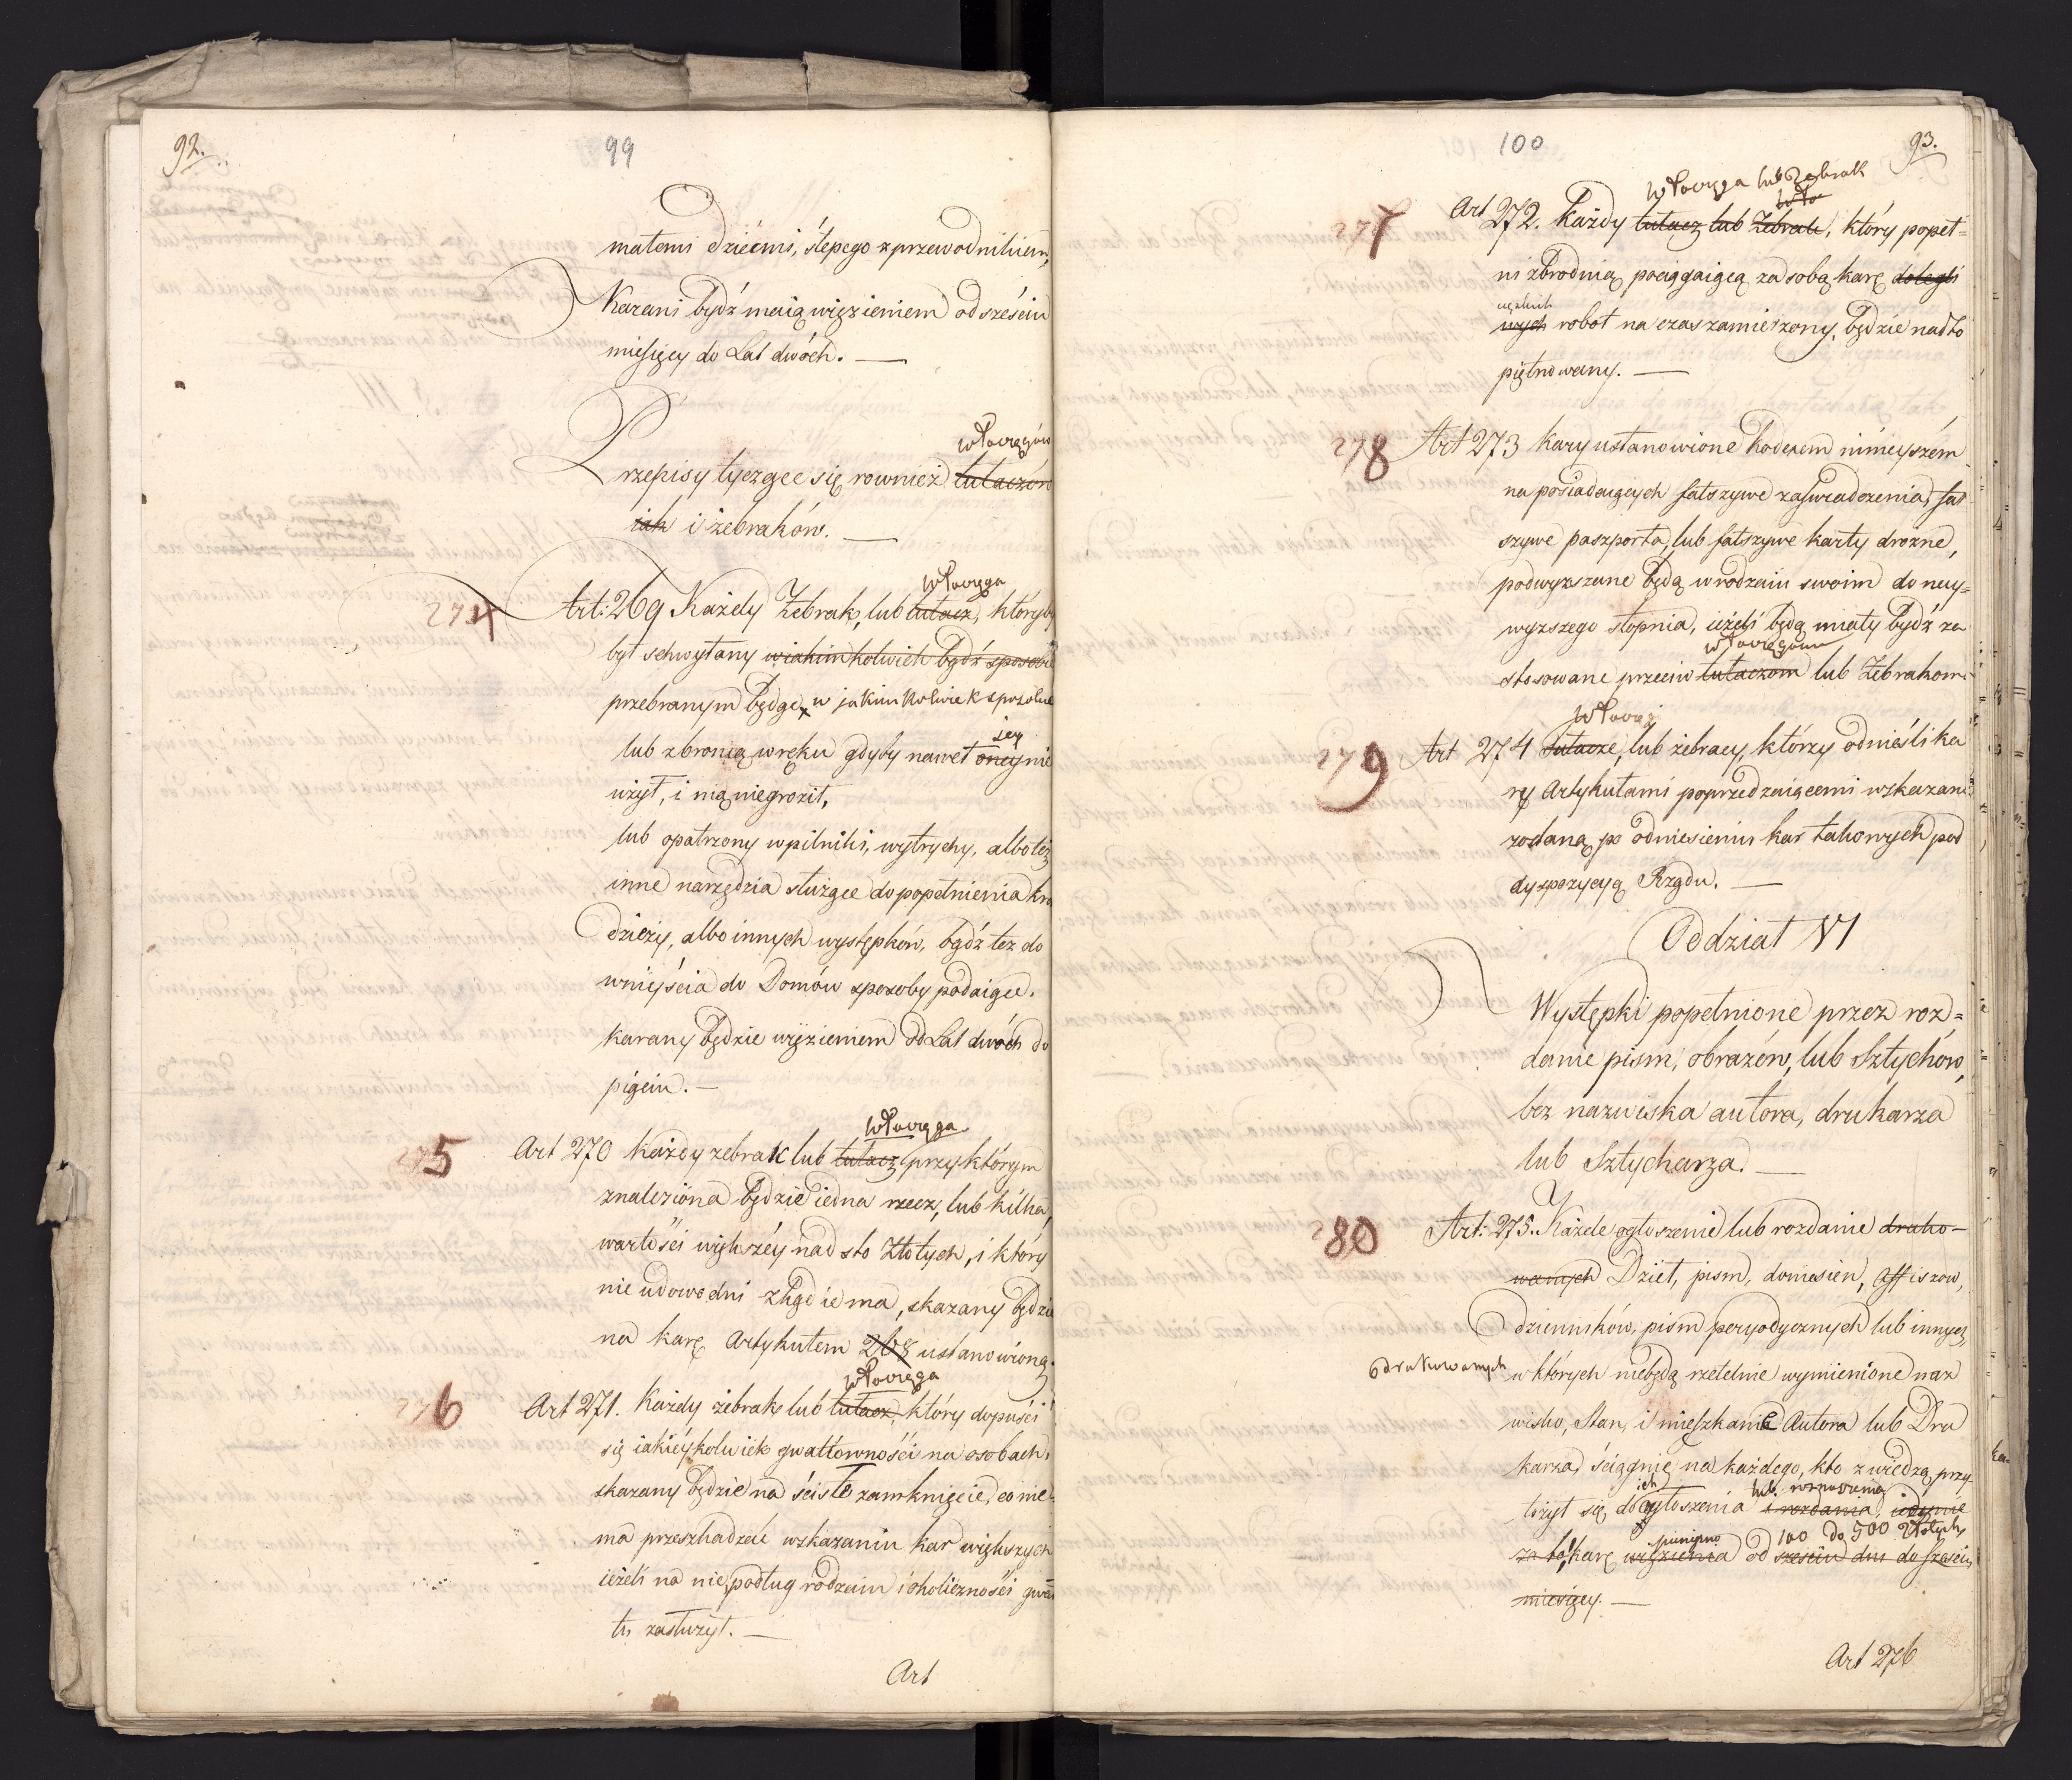 92.
99
małemi dziećmi, ślepego z przewodnikiem,
Karani bydź maią więzieniem od sześciu
miesięcy do Lat dwóch. —
włóczęgów
Przepisy tyczące się rownież tułaczów
iak i żebraków. —
włóczęga
274 Art: 269 Każdy Żebrak, lub tułacz, któryby
był schwytany w iakimkolwiek bądź sposobie
przebranym będąc, w jakimkolwiek sposobie
iey
lub z bronią w ręku gdyby nawet oney nie
użył, i nią niegroził,
lub opatrzony w pilniki, wytrychy, albo też
inne narzędzia służące do popełnienia kra
dzieży, albo innych występków, bądź tez do
wniyścia do Domów sposoby podaiące.
Karany będzie więzieniem od Lat dwóch do
pięciu. —
włóczęga
275 Art 270 każdy zebrak lub tułacz, przy którym
znaleziona będzie iedna rzecz, lub kilka,
wartości większéy nad sto Złotych, i który
nie udowodni zkąd ie ma, skazany będzie
na karę Artykułem 268 ustanowioną.
włóczęga
276 Art 271. Każdy żebrak lub tułacz, który dopuści
się iakiéykolwiek gwałtowności na osobach,
skazany będzie na ścisłe zamknięcie, co nie-
ma przeszkadzać wskazaniu kar większych
ieżeli na nie, podług rodzaiu i okoliczności gwał
tu zasłużył. —
Art
100
93.
włóczęga lub Żebrak
277 Art 272. Każdy tułacz lub Żebrak, który popeł=
ni zbrodnią pociągaiącą za sobą karę dolegli
ciężkich
wych robot na czas zamierzony, będzie nadto
piętnowany. —
278 Art 273 Kary ustanowione Kodexem ninieyszém
na posiadaiących fałszywe zaświadczenia, fał
szywe paszporta, lub fałszywe karty drożne,
podwyższane będą w rodzaiu swoim do nay=
wyższego stopnia, ieżeli będą miały bydź za
włóczęgom
stosowane przeciw tułaczom lub Żebrakom.
Włóczęgi
279 Art 274 Tułacze, lub żebracy, którzy odnieśli ka
rę Artykułami poprzedzaiącemi wskazaną
zostaną po odniesieniu kar takowych pod
dyspozycyą Rządu. —
Oddział VI
Występki popełnione przez roz=
danie pism, obrazów, lub Sztychów,
bez nazwiska autora, drukarza
lub Sztycharza. —
280 Art: 275. Każde ogłoszenie lub rozdanie druko-
wanych Dzieł, pism, doniesień, Affiszow,
dzienników, pism peryodycznych lub innych,
odrukowanych w których niebędą rzetelnie wymienione naz
wisko, Stan, i mieszkanie Autora lub Dru
karza, ściągnie na każdego, kto z wiedzą przy-
ich lub roznoszenia
łożył się do ogłoszenia i rozdania, iedynie
pieniężną 100 do 500 Złotych,
za to, karę więzienia od sześciu dni do sześciu
miesięcy. —
Art 276